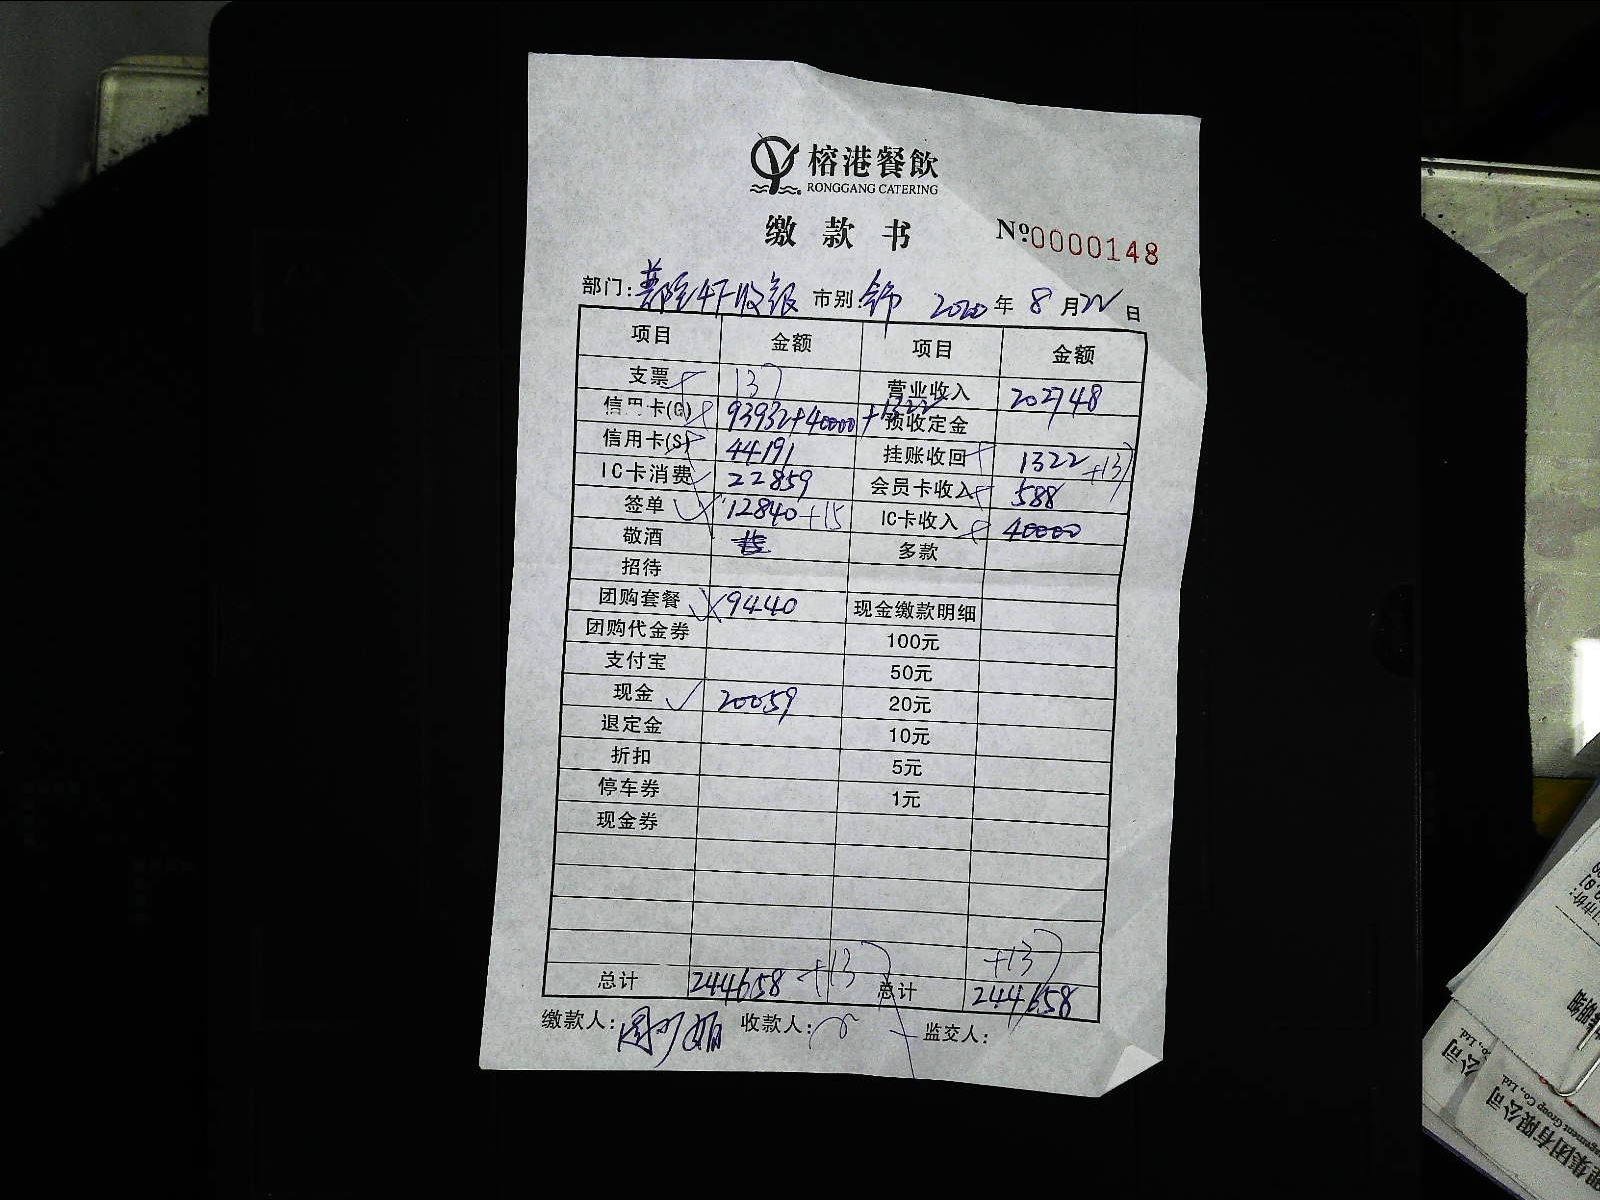 榕港餐飲
RONGGANG CATERING
缴款书
№0000148
部门: 4F收银 市别 2020年8月22日
项目 金额 项目 金额
支票 137 营业收入 202748
信用卡(G) 93932+40000+1322 预收定金
信用卡(S) 44191 挂账收回 1322+137
IC卡消费 22859 会员卡收入 588
签单 12840+15 IC卡收入 40000
敬酒 多款
招待
团购套餐 9440 现金缴款明细
团购代金券 100元
支付宝 50元
现金 20059 20元
退定金 10元
折扣 5元
停车券 1元
现金券
总计 244658 +137 总计 244658 +137
缴款人: 收款人: 监交人:
公司
Co., Ltd.
集团有限公司
agement Group Co., Ltd.